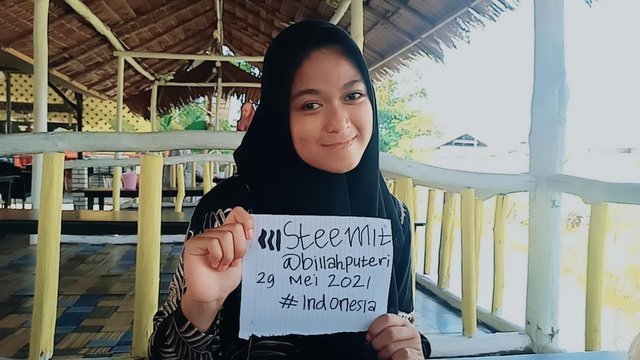 Steemit
@billahputeri
29 Mei 2021
#Indonesia